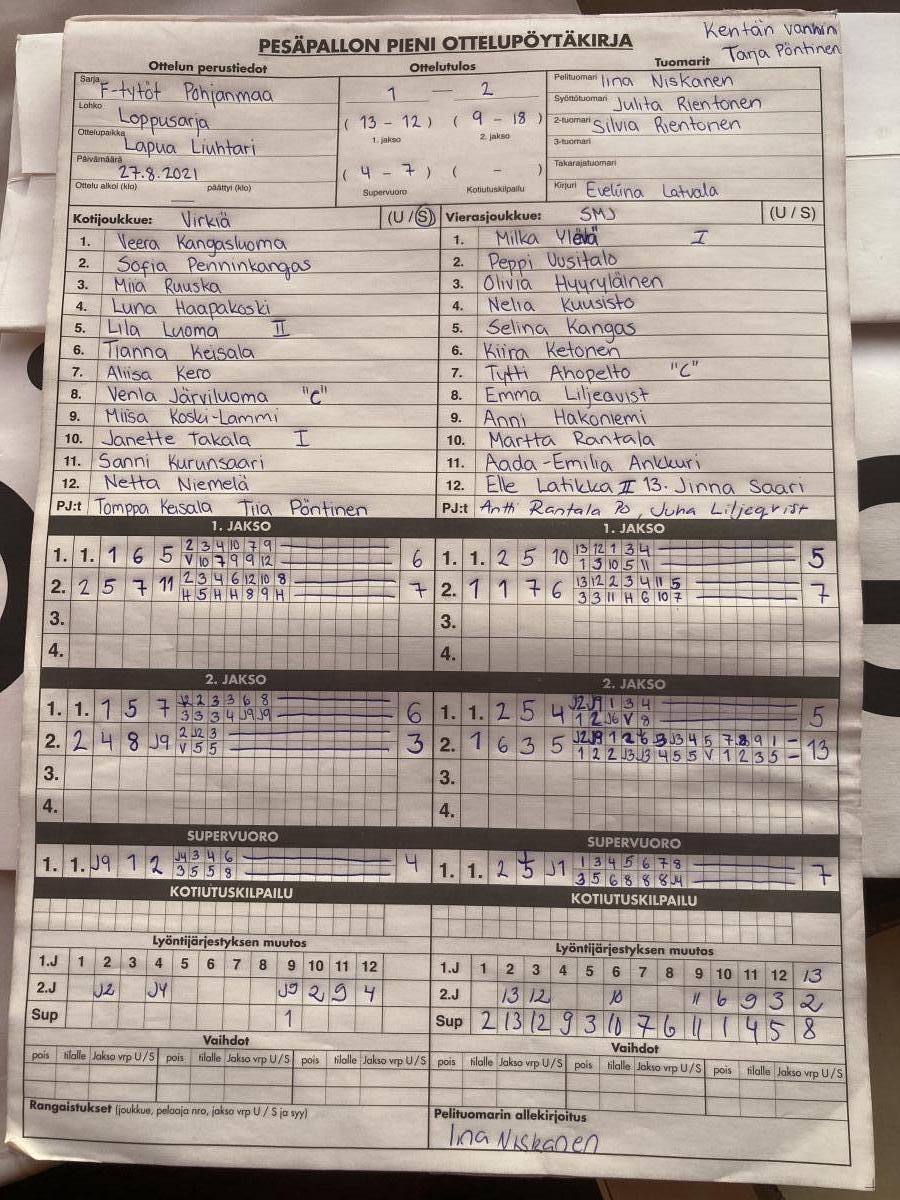 Kentän vanhin
Tarja Pöntinen
PESÄPALLON PIENI OTTELUPÖYTÄKIRJA
Ottelun perustiedot Ottelutulos Tuomarit
Sarja F-tytöt Pohjanmaa
Lohko Loppusarja
Ottelupaikka Lapua Liuhtari
Päivämäärä 27.8.2021
Ottelu alkoi (klo) — päättyi (klo)
1 — 2
( 13 - 12 ) ( 9 - 18 )
1. jakso 2. jakso
( 4 - 7 ) ( - )
Supervuoro Kotiutuskilpailu
Pelituomari Iina Niskanen
Syöttötuomari Julita Rientonen
2-tuomari Silvia Rientonen
3-tuomari
Takarajatuomari
Kirjuri Eveliina Latvala
Kotijoukkue: Virkiä (U / S)
1. Veera Kangasluoma
2. Sofia Penninkangas
3. Miia Ruuska
4. Luna Haapakoski
5. Lila Luoma II
6. Tianna Keisala
7. Aliisa Kero
8. Venla Järviluoma "C"
9. Miisa Koski-Lammi
10. Janette Takala I
11. Sanni Kurunsaari
12. Netta Niemelä
PJ:t Tomppa Keisala Tiia Pöntinen
Vierasjoukkue: SMJ (U / S)
1. Milka Ylevä I
2. Peppi Uusitalo
3. Olivia Hyyryläinen
4. Nelia Kuusisto
5. Selina Kangas
6. Kiira Ketonen
7. Tytti Ahopelto "C"
8. Emma Liljeqvist
9. Anni Hakoniemi
10. Martta Rantala
11. Aada-Emilia Ankkuri
12. Elle Latikka II 13. Jinna Saari
PJ:t Antti Rantala Po, Juha Liljeqvist
1. JAKSO
1. 1. 1 6 5 2 3 4 10 7 9 6
V 10 7 9 9 12
2. 2 5 7 11 2 3 4 6 12 10 8 7
H 5 H H 8 9 H
3.
4.
1. JAKSO
1. 1. 2 5 10 13 12 1 3 4 5
1 3 10 5 11
2. 1 1 7 6 13 12 2 3 4 11 5 7
3 3 11 H 6 10 7
3.
4.
2. JAKSO
1. 1. 1 5 7 2 3 3 6 8 6
3 3 3 4 J9 J9
2. 2 4 8 J9 2 J2 3 3
V 5 5
3.
4.
2. JAKSO
1. 1. 2 5 4 J2 J9 1 3 4 5
1 2 J6 V 8
2. 1 6 3 5 J2 J9 1 2 6 3 J3 4 5 7 8 9 1 - 13
1 2 2 J3 J3 4 5 5 V 1 2 3 5 -
3.
4.
SUPERVUORO
1. 1. J9 1 2 J4 3 4 6 4
3 5 5 8
SUPERVUORO
1. 1. 2 5 J1 1 3 4 5 6 7 8 7
3 5 6 8 8 8 J4
KOTIUTUSKILPAILU
KOTIUTUSKILPAILU
Lyöntijärjestyksen muutos
1.J 1 2 3 4 5 6 7 8 9 10 11 12
2.J J2 J4 J9 2 9 4
Sup 1
Lyöntijärjestyksen muutos
1.J 1 2 3 4 5 6 7 8 9 10 11 12 13
2.J 13 12 10 11 6 9 3 2
Sup 2 13 12 9 3 10 7 6 11 1 4 5 8
Vaihdot
pois tilalle Jakso vrp U / S pois tilalle Jakso vrp U / S pois tilalle Jakso vrp U / S
Vaihdot
pois tilalle Jakso vrp U / S pois tilalle Jakso vrp U / S pois tilalle Jakso vrp U / S
Rangaistukset (joukkue, pelaaja nro, jakso vrp U / S ja syy)
Pelituomarin allekirjoitus
Iina Niskanen